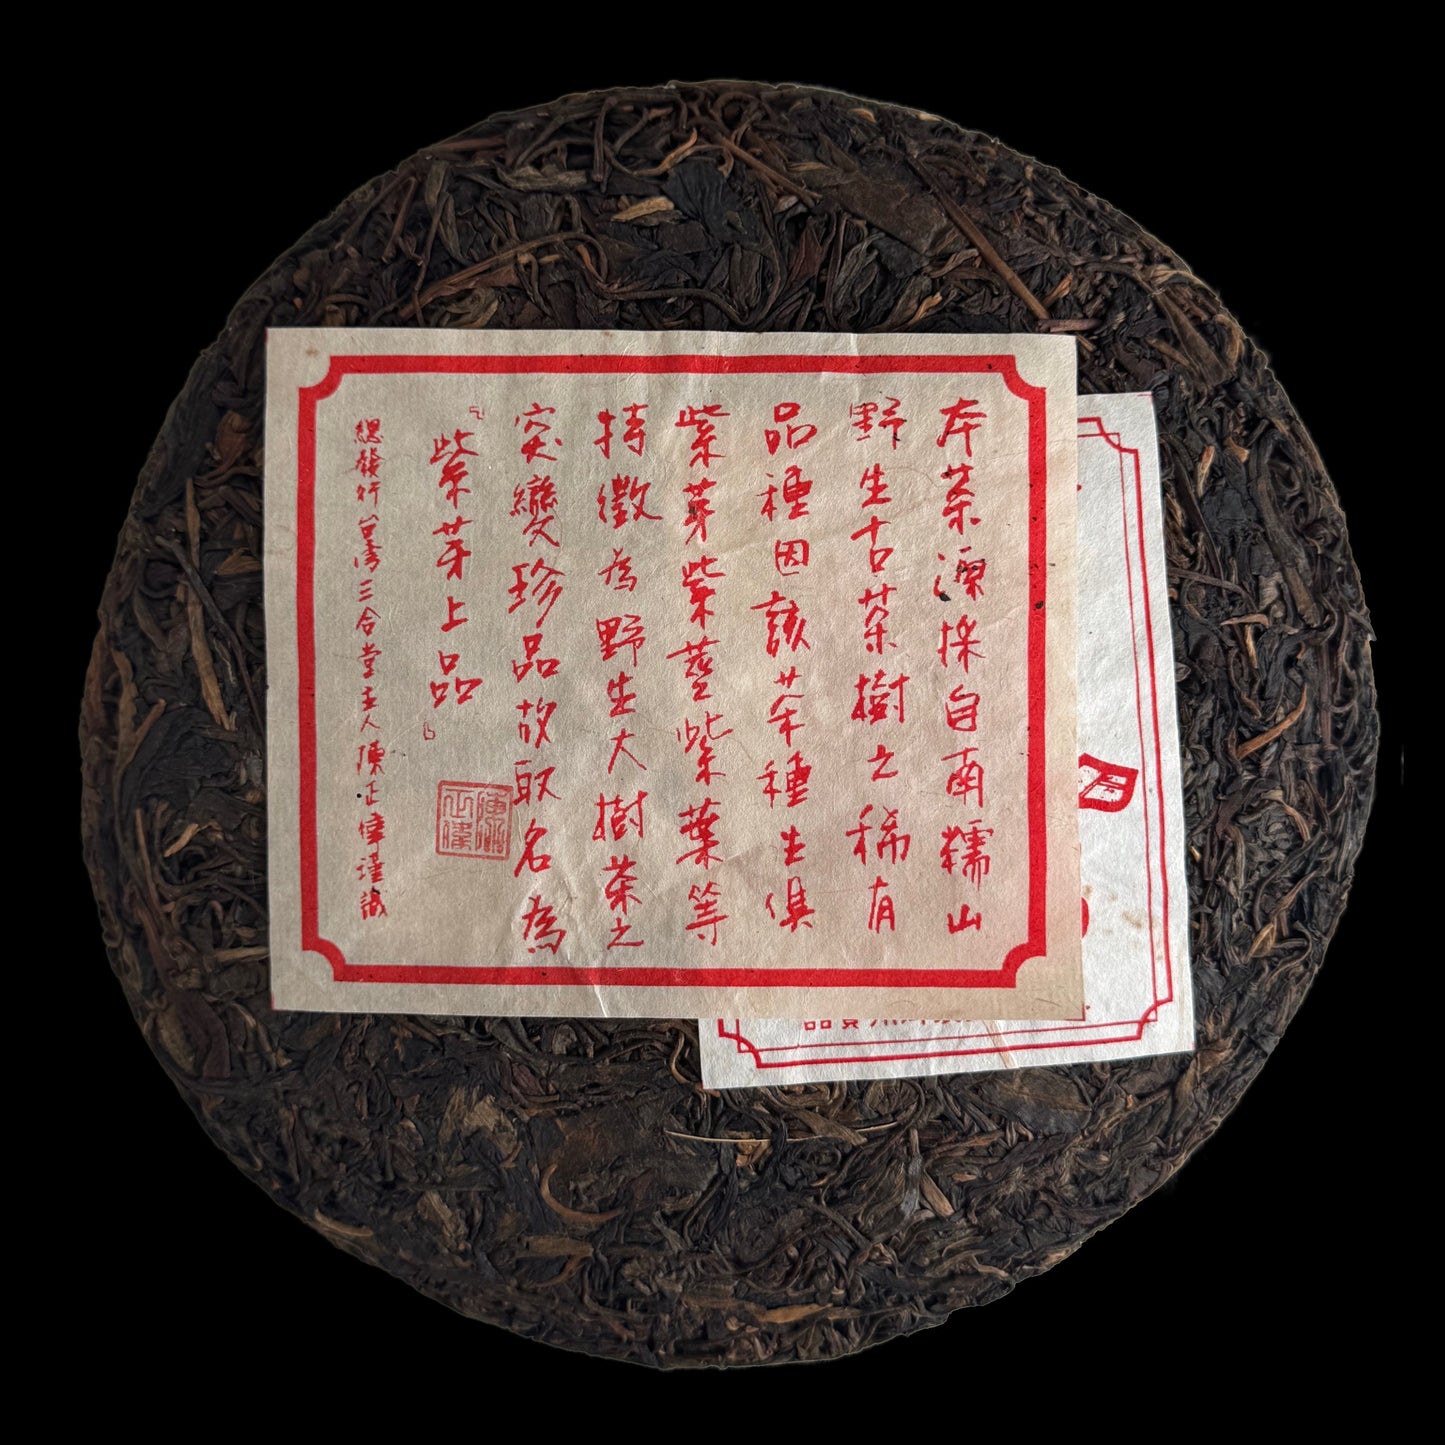 本茶源採自南糯山
野生古茶樹之稀有
品種因該茶種生俱
紫芽紫莖紫葉等
特徵為野生大樹茶之
突變珍品故取名為
『紫芽上品』
總發行台灣三合堂主人陳正偉謹識